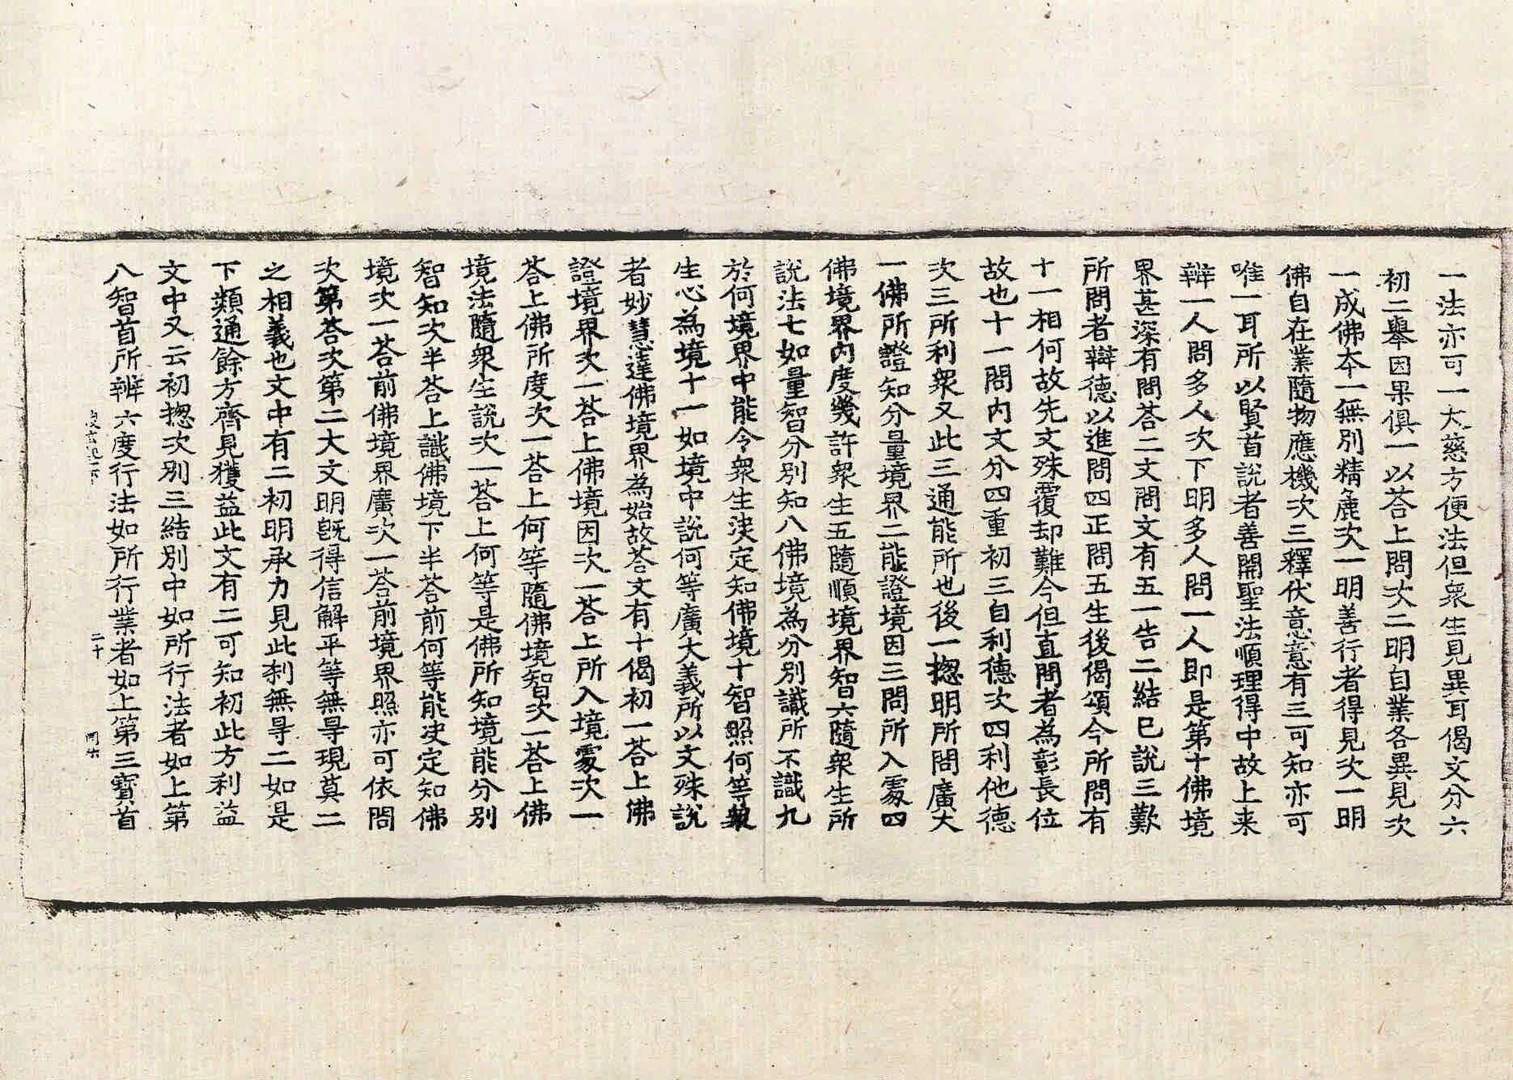 一法亦可一大慈方便法但衆生見異耳偈文分六
初二舉因果俱一以荅上問次二明自業各異見次
一成佛夲一無別精麁次一明善行者得見次一明
佛自在業隨物應機次三釋伏意意有三可知亦可
唯一耳所以賢首說者善開聖法順理得中故上来
辯一人問多人次下明多人問一人即是第十佛境
界甚深有問荅二文問文有五一告二結已說三歎
所問者辯德以進問四正問五生後偈頌今所問有
十一相何故先文殊覆却難今但直問者為彰長位
故也十一問內文分四重初三自利德次四利他德
次三所利衆又此三通能所也後一揔明所問廣大
一佛所證知分量境界二能證境因三問所入處四
佛境界內度幾許衆生五隨順境界智六隨衆生所
說法七如量智分別知八佛境為分別識所不識九
於何境界中能令衆生決定知佛境十智照何等衆
生心為境十一如境中說何等廣大義所以文殊說
者妙慧達佛境界為始故荅文有十偈初一荅上佛
證境界次一荅上佛境因次一荅上所入境處次一
荅上佛所度次一荅上何等隨佛境智次一荅上佛
境法隨衆生說次一荅上何等是佛所知境能分別
智知次半荅上識佛境下半荅前何等能決定知佛
境次一荅前佛境界廣次一荅前境界照亦可依問
次第荅次第二大文明旣得信解平等無㝵現莫二
之相義也文中有二初明承力見此刹無㝵二如是
下類通餘方齊見獲益此文有二可知初此方利益
文中又云初揔次別三結別中如所行法者如上第
八智首所辨六度行法如所行業者如上第三寶首
二十